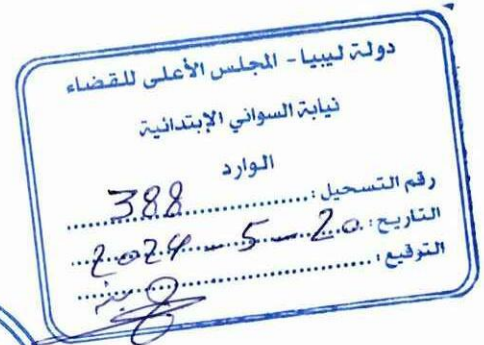 دولة ليبيا - المجلس الأعلى للقضاء
نيابة السواني الإبتدائية
الوارد
رقم التسجيل: 388
التاريخ: 20 - 5 - 2024
التوقيع: